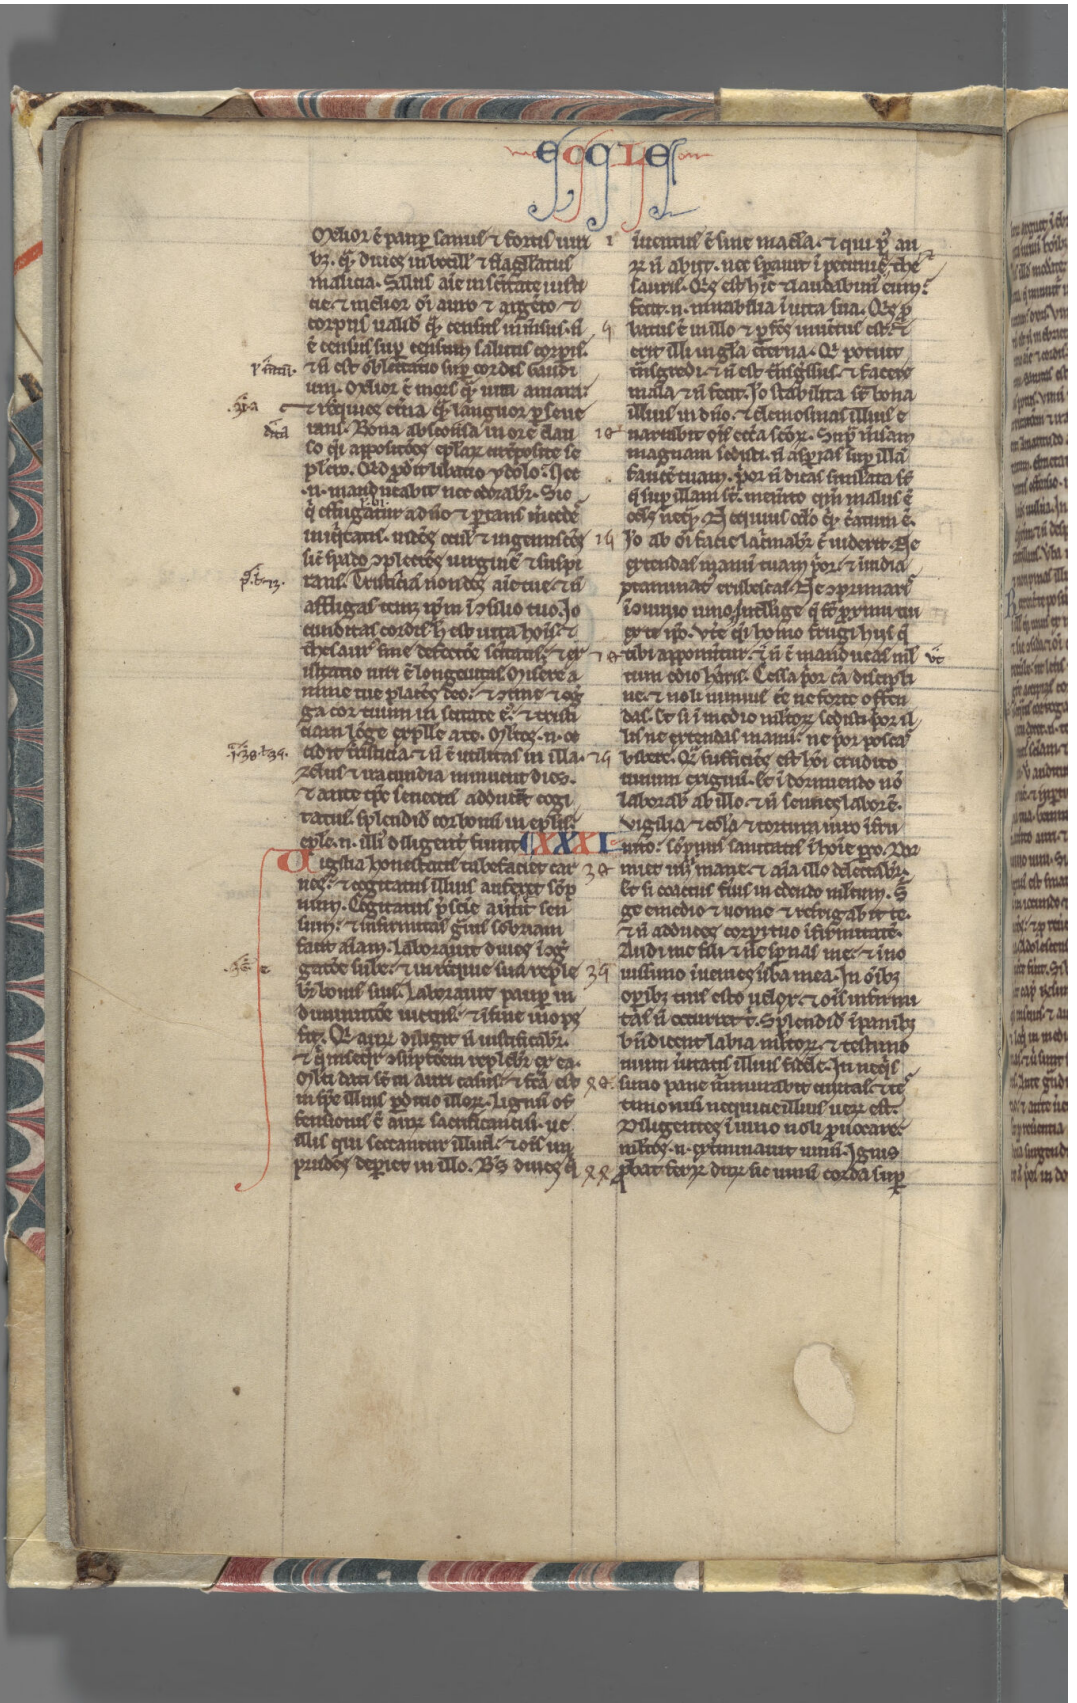 ECCLE
Melior ē paup̄ sanus ⁊ fortis uiri
bȝ. qͣ diues inbecill' ⁊ flagellatus
malicia. Salus aīe in sc̄itate iusti
cie. ⁊ melior oī auro ⁊ argēto. ⁊
corpus ualid' qͣ census īm̄sus. n̄
ē census sup̄ censum salutis corpis.
⁊ n̄ est oblectatio sup̄ cordis gaudi
um. Melior ē mors qͣ uita amara.
⁊ req̇es et̄na qͣ languor p̄seue
rans. Bona absconsa in ore clau
so q̄i appositōes epl'ar̄ c̄cūposite se
pl'cro. Qid pōit libatio ydolo. Nec
.n. manducabit nec odorabr̄. Sic
q̇ effugatur a dn̄o ⁊ portans m̄cede
iniq̇tatis. uidēs ocul' ⁊ ingemiscēs
sic̄ spado ↄplectēs uirginē ⁊ suspi
rans. Tristiciā non des aīe tue. ⁊ n̄
affligas temet ip̄m ī ↄsilio tuo. Jo
cunditas cordis h̄ est uita hoīs. ⁊
thesaur' sine defectōe sc̄itatis. ⁊ ex
ultatio uiri ē longeuitas. Miserea
nime tue placēs deo. ⁊ ↄtine. ⁊ ↄg̊
ga cor tuum in sc̄itate ei'. ⁊ tristi
ciam lōge expelle a te. Ml̄tos .n. oc
cidit tristicia. ⁊ n̄ ē utilitas in illa.
Zelus ⁊ iracundia minuent dies.
⁊ ante tp̄s senectā adducēt cogi
tatus. Splendid' cor bonū in epl'is.
epl'e .n. illi' diligent̄ fiunt. CXXXI
Uigilia honestatis tabefaciet car
nes. ⁊ cogitatus illius auferet sōp
num. Cogitatus p̄scie au'tit sen
sum. ⁊ infirmitas g̊uis sobriam
facit aīam. Laborauit diues ī ↄg̊
gatōe sube. ⁊ in req̇e sua reple
br̄ bonis suis. Laborauit paup̄ in
diminutōe uictus. ⁊ ī fine inops
fit. Q̇ aur̄ diligit n̄ iustificabr̄.
⁊ q̇ inseq̇r̄ ↄsūptōem replebr̄ ex ea.
Ml̄ti dati sc̄ in auri casus. ⁊ fc̄a est
in sp̄e illius pd̄itio illor̄. Lignū of
fensionis ē aur̄ sacrificantiū. ue
illis qui sectantur illud. ⁊ oīs im
prudēs depiet in illo. Bt̄s diues q̇
inuentus ē sine macl'a. ⁊ qui p' au
r̄ n̄ abiit. nec sp̄auit ī pecunie the
sauris. Q̇s est hic ⁊ laudabim' eum.
fecit .n. mirabilia ī uita sua. Q̇s p
batus ē in illo ⁊ pfc̄s inuētus est. ⁊
erit illi in gl'a et̄rna. Q̇ potuit
tn̄sgredi ⁊ n̄ est tn̄sg̊ssus. ⁊ facere
mala ⁊ n̄ fecit. Jo stabilita sc̄ bona
illius in dn̄o. ⁊ elemosinas illius e
narrabit oīs ecc̄a sc̄or̄. Sup̄ m̄sam
magnam sedisti. n̄ aꝑias sup̄ illā
faucē tuam. p̄or n̄ dicas si multa sc̄
q̄ sup̄ illam sc̄. mem̄to qm̄ malus ē
ocl's neq̄. Nequius ocl'o qͣ c̄atum ē.
Jo ab oī facie lac̄mabr̄ cū uiderit. Ne
extendas manū tuam p̄or. ⁊ īuidia
ↄtaminat' erubescas. Ne ↄprimaris
ī ↄuiuio uino. Intellige q̄ sc̄ proximi tui
ex te ip̄o. Ut̄e q̄i homo frugi hijs q̄
tibi apponūtur. ⁊ n̄ cū manducas ml̄
tum odio h̄aris. Cessa p̄or ca discipli
ne. ⁊ noli nimius ēe ne forte offen
das. Et si ī medio ml̄tor̄ sedisti p̄or il
lis ne extendas manū. ne p̄or poscas
bibere. Q̇ sufficiēs est hōi erudito
uinum exiguū. Et ī dormiendo nō
laborab' ab illo. ⁊ n̄ senties laborē.
Vigilia ⁊ col'a ⁊ tortura uiro īfru
nito. Sōpnus sanitatis ī hoīe parco. Dor
miet usq̄ mane. ⁊ aīa illo delectabr̄.
Et si coactus fuis in edendo ml̄tum. S̄
ge e medio ⁊ uome ⁊ refrigabit te.
⁊ n̄ adduces corpi tuo īfirmitatē.
Audi me fili ⁊ ne sp̄nas me. ⁊ ī no
uissimo inuenies ūba mea. In oībȝ
opibȝ tuis esto uelox. ⁊ oīs infirmi
tas n̄ occurret t'. Splendid' ī panibȝ
bn̄dicent labia ml̄tor̄. ⁊ testimo
nium ūitatis illius fidele. In neq̇s
simo pane murmurabit ciuitas. ⁊ tes
timonium nequicie illius uer̄ est.
Diligentes ī uino noli puocare.
ml̄tos .n. ext̄minauit uinū. Ignis
pbat ferr̄ dur̄ sic uinū corda sup̄